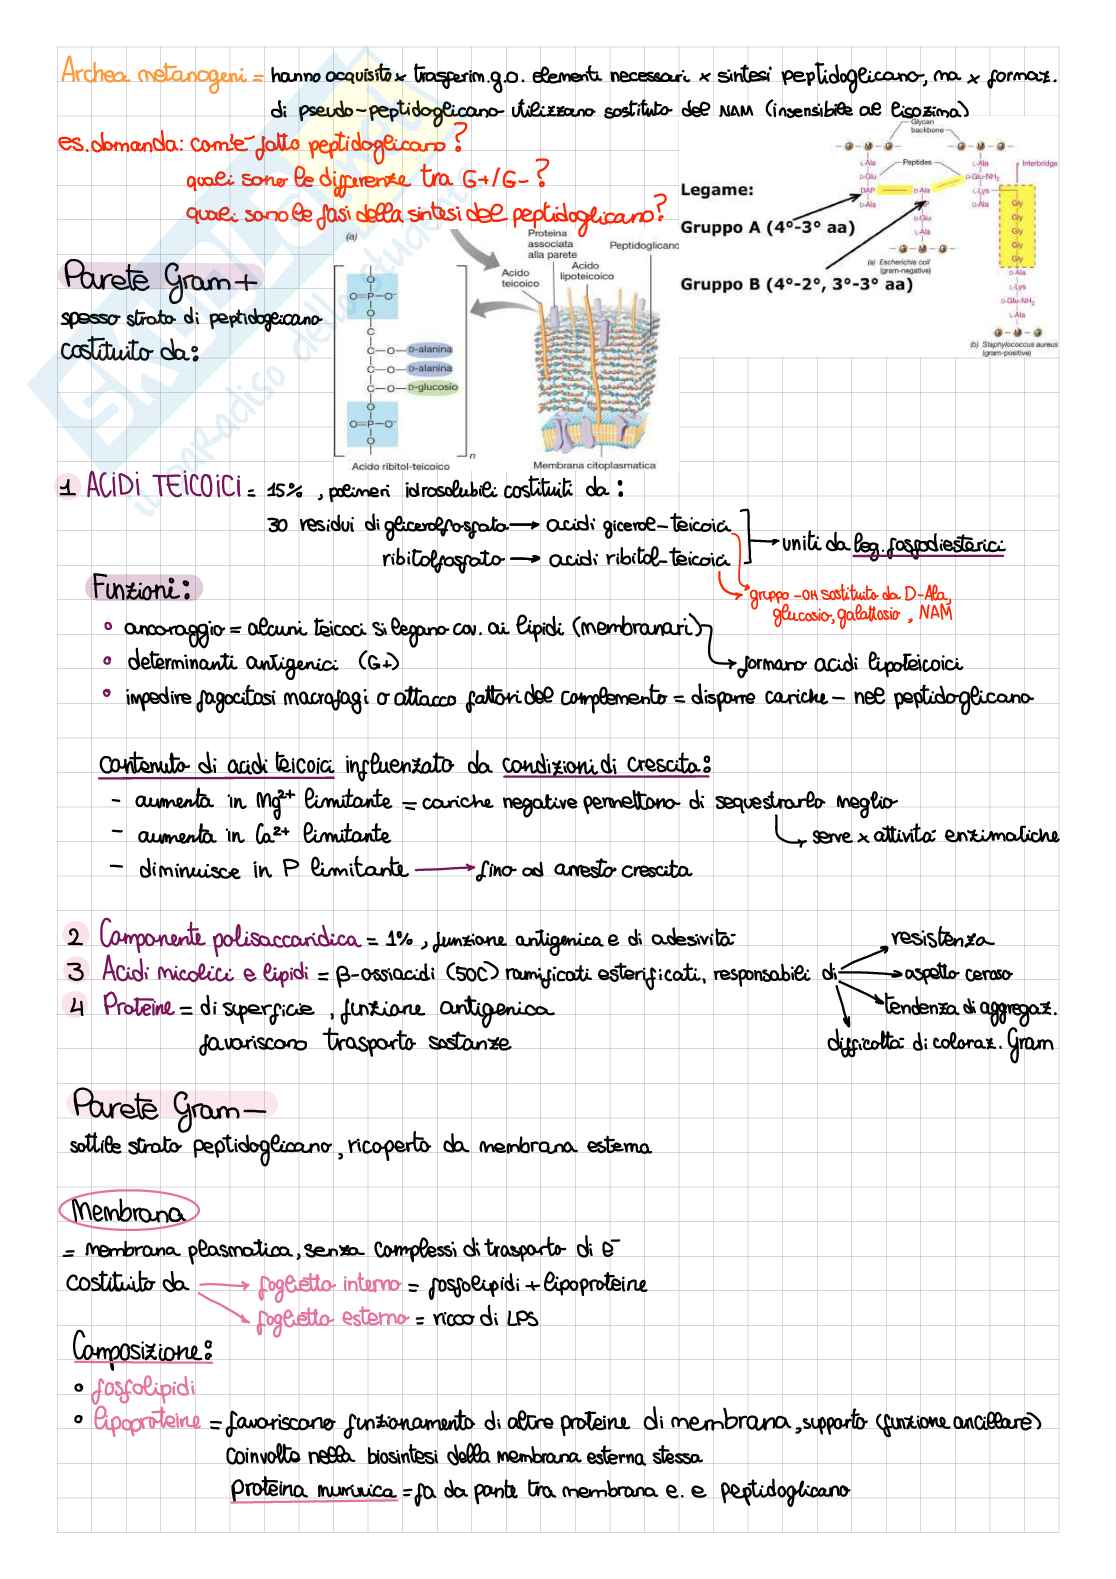 Archea metanogeni = hanno acquisito x trasferim.g.o. elementi necessari x sintesi peptidoglicano, ma x formaz.
di pseudo-peptidoglicano utilizzano sostituto del NAM (insensibile al lisozima)
es. domanda: com'è fatto peptidoglicano?
quali sono le differenze tra G+/G-?
quali sono le fasi della sintesi del peptidoglicano?
Glycan
backbone
L-Ala
Peptides
L-Ala
Interbridge
D-Glu
D-Glu-NH₂
DAP
D-Ala
L-Lys
D-Ala
D-Ala
Gly
Gly
Gly
Gly
Gly
D-Glu
L-Ala
(a) Escherichia coli
(gram-negative)
D-Ala
L-Lys
D-Glu-NH₂
L-Ala
(b) Staphylococcus aureus
(gram-positive)
Legame:
Gruppo A (4°-3° aa)
Gruppo B (4°-2°, 3°-3° aa)
Parete Gram+
spesso strato di peptidoglicano
costituito da:
(a)
O
O=P-O⁻
O
C
C-O-D-alanina
C-O-D-alanina
C-O-D-glucosio
O
O=P-O⁻
O
n
Acido ribitol-teicoico
Proteina
associata
alla parete
Peptidoglicano
Acido
teicoico
Acido
lipoteicoico
Membrana citoplasmatica
1 ACIDI TEICOICI = 15%, polimeri idrosolubili costituiti da:
30 residui di glicerolfosfato → acidi glicerol-teicoici
ribitolfosfato → acidi ribitol-teicoici
uniti da leg. fosfodiesterici
gruppo -OH sostituito da D-Ala,
glucosio, galattosio, NAM
Funzioni:
° ancoraggio = alcuni teicoci si legano cov. ai lipidi (membranari)
formano acidi lipoteicoici
° determinanti antigenici (G+)
° impedire fagocitosi macrofagi o attacco fattori del complemento = disporre cariche - nel peptidoglicano
contenuto di acidi teicoici influenzato da condizioni di crescita:
- aumenta in Mg²⁺ limitante = cariche negative permettono di sequestrarlo meglio
serve x attività enzimatiche
- aumenta in Ca²⁺ limitante
- diminuisce in P limitante → fino ad arresto crescita
2 Componente polisaccaridica = 1%, funzione antigenica e di adesività
3 Acidi micolici e lipidi = β-ossiacidi (50C) ramificati esterificati, responsabili di
resistenza
aspetto ceroso
tendenza di aggregaz.
difficoltà di coloraz. Gram
4 Proteine = di superficie, funzione antigenica
favoriscono trasporto sostanze
Parete Gram-
sottile strato peptidoglicano, ricoperto da membrana esterna
Membrana
= membrana plasmatica, senza complessi di trasporto di e⁻
costituito da → foglietto interno = fosfolipidi + lipoproteine
→ foglietto esterno = ricco di LPS
Composizione:
° fosfolipidi
° lipoproteine = favoriscono funzionamento di altre proteine di membrana, supporto (funzione ancillare)
coinvolto nella biosintesi della membrana esterna stessa
Proteina mureinica = fa da ponte tra membrana e. e peptidoglicano